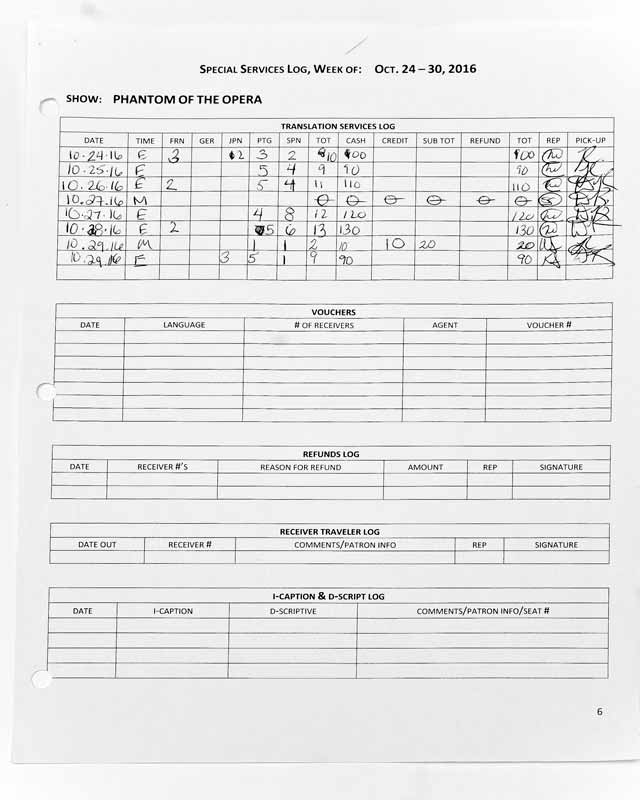 SPECIAL SERVICES LOG, WEEK OF: OCT. 24 – 30, 2016
SHOW: PHANTOM OF THE OPERA
TRANSLATION SERVICES LOG
DATE TIME FRN GER JPN PTG SPN TOT CASH CREDIT SUB TOT REFUND TOT REP PICK-UP
10.24.16 E 3 2 3 2 10 100 100
10.25.16 E 5 4 9 90 90
10.26.16 E 2 5 4 11 110 110
10.27.16 M 0 0 0 0 0 0
10.27.16 E 4 8 12 120 120
10.28.16 E 2 5 6 13 130 130
10.29.16 M 1 1 2 10 10 20 20
10.29.16 E 3 5 1 9 90 90
VOUCHERS
DATE LANGUAGE # OF RECEIVERS AGENT VOUCHER #
REFUNDS LOG
DATE RECEIVER #'S REASON FOR REFUND AMOUNT REP SIGNATURE
RECEIVER TRAVELER LOG
DATE OUT RECEIVER # COMMENTS/PATRON INFO REP SIGNATURE
I-CAPTION & D-SCRIPT LOG
DATE I-CAPTION D-SCRIPTIVE COMMENTS/PATRON INFO/SEAT #
6